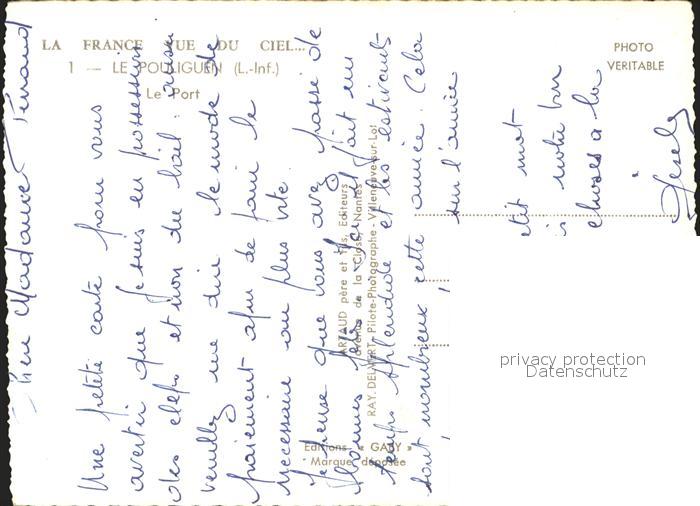 LA FRANCE VUE DU CIEL...
1 — LE POULIGUEN (L.-Inf.)
Le Port
PHOTO
VERITABLE
ARTAUD père et fils, Editeurs
avenue de la Close, Nantes
RAY. DELVERT, Pilote-Photographe - Villeneuve-sur-Lot
Editions « GABY »
Marque déposée
Madame
Une petite carte pour vous
avertir que je suis en possession
des clefs et non du bail. aussi
veuillez me dire le mode de
paiement afin de faire le
nécessaire au plus vite.
Je pense que vous avez passé de
bonnes fait un
temps splendide et les estivants
sont nombreux, cette année. Cela
sur l'année
mot
notre
choses à la
privacy protection
Datenschutz